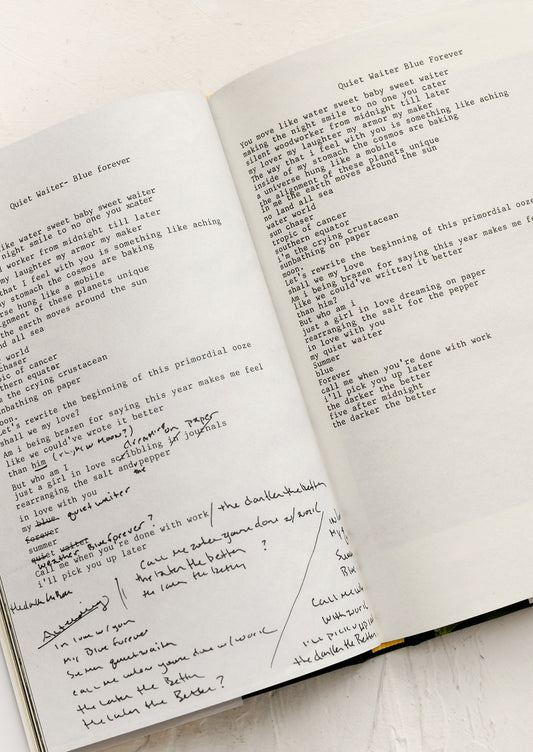 Quiet Waiter- Blue forever
like water sweet baby sweet waiter
night smile to no one you cater
d worker from midnight till later
my laughter my armor my maker
that I feel with you is something like aching
my stomach the cosmos are baking
erse hung like a mobile
ignment of these planets unique
the earth moves around the sun
nd all sea
r world
chaser
pic of cancer
thern equator
m the crying crustacean
unbathing on paper
soon.
Let's rewrite the beginning of this primordial ooze
shall we my love?
Am i being brazen for saying this year makes me feel
like we could've wrote it better
than him
But who am I dreaming on paper
just a girl in love scribbling in journals
rearranging the salt and the pepper
in love with you
my blue quiet waiter
forever
summer
quiet waiter
weather Blue forever?
call me when you're done with work / the darker the better
i'll pick you up later
call me when you're done w/ work
the later the better ?
the later the better
In love w/ you
My Blue forever
Summer quiet waiter
call me when you're done w/ work
the later the Better
the later the Better?
My
Summ
Blu
Call me w
with work
I'll pick u up l
the darker the Better
Quiet Waiter Blue Forever
You move like water sweet baby sweet waiter
making the night smile to no one you cater
silent woodworker from midnight till later
my lover my laughter my armor my maker
The way that i feel with you is something like aching
inside of my stomach the cosmos are baking
a universe hung like a mobile
the alignment of these planets unique
in me the earth moves around the sun
no land all sea
water world
sun chaser
tropic of cancer
southern equator
i'm the crying crustacean
sunbathing on paper
soon.
Let's rewrite the beginning of this primordial ooze
shall we my love
Am i being brazen for saying this year makes me fe
like we could've written it better
than him?
But who am i
just a girl in love dreaming on paper
rearranging the salt for the pepper
in love with you
my quiet waiter
Summer
blue
Forever
call me when you're done with work
i'll pick you up later
the darker the better
five after midnight
the darker the better